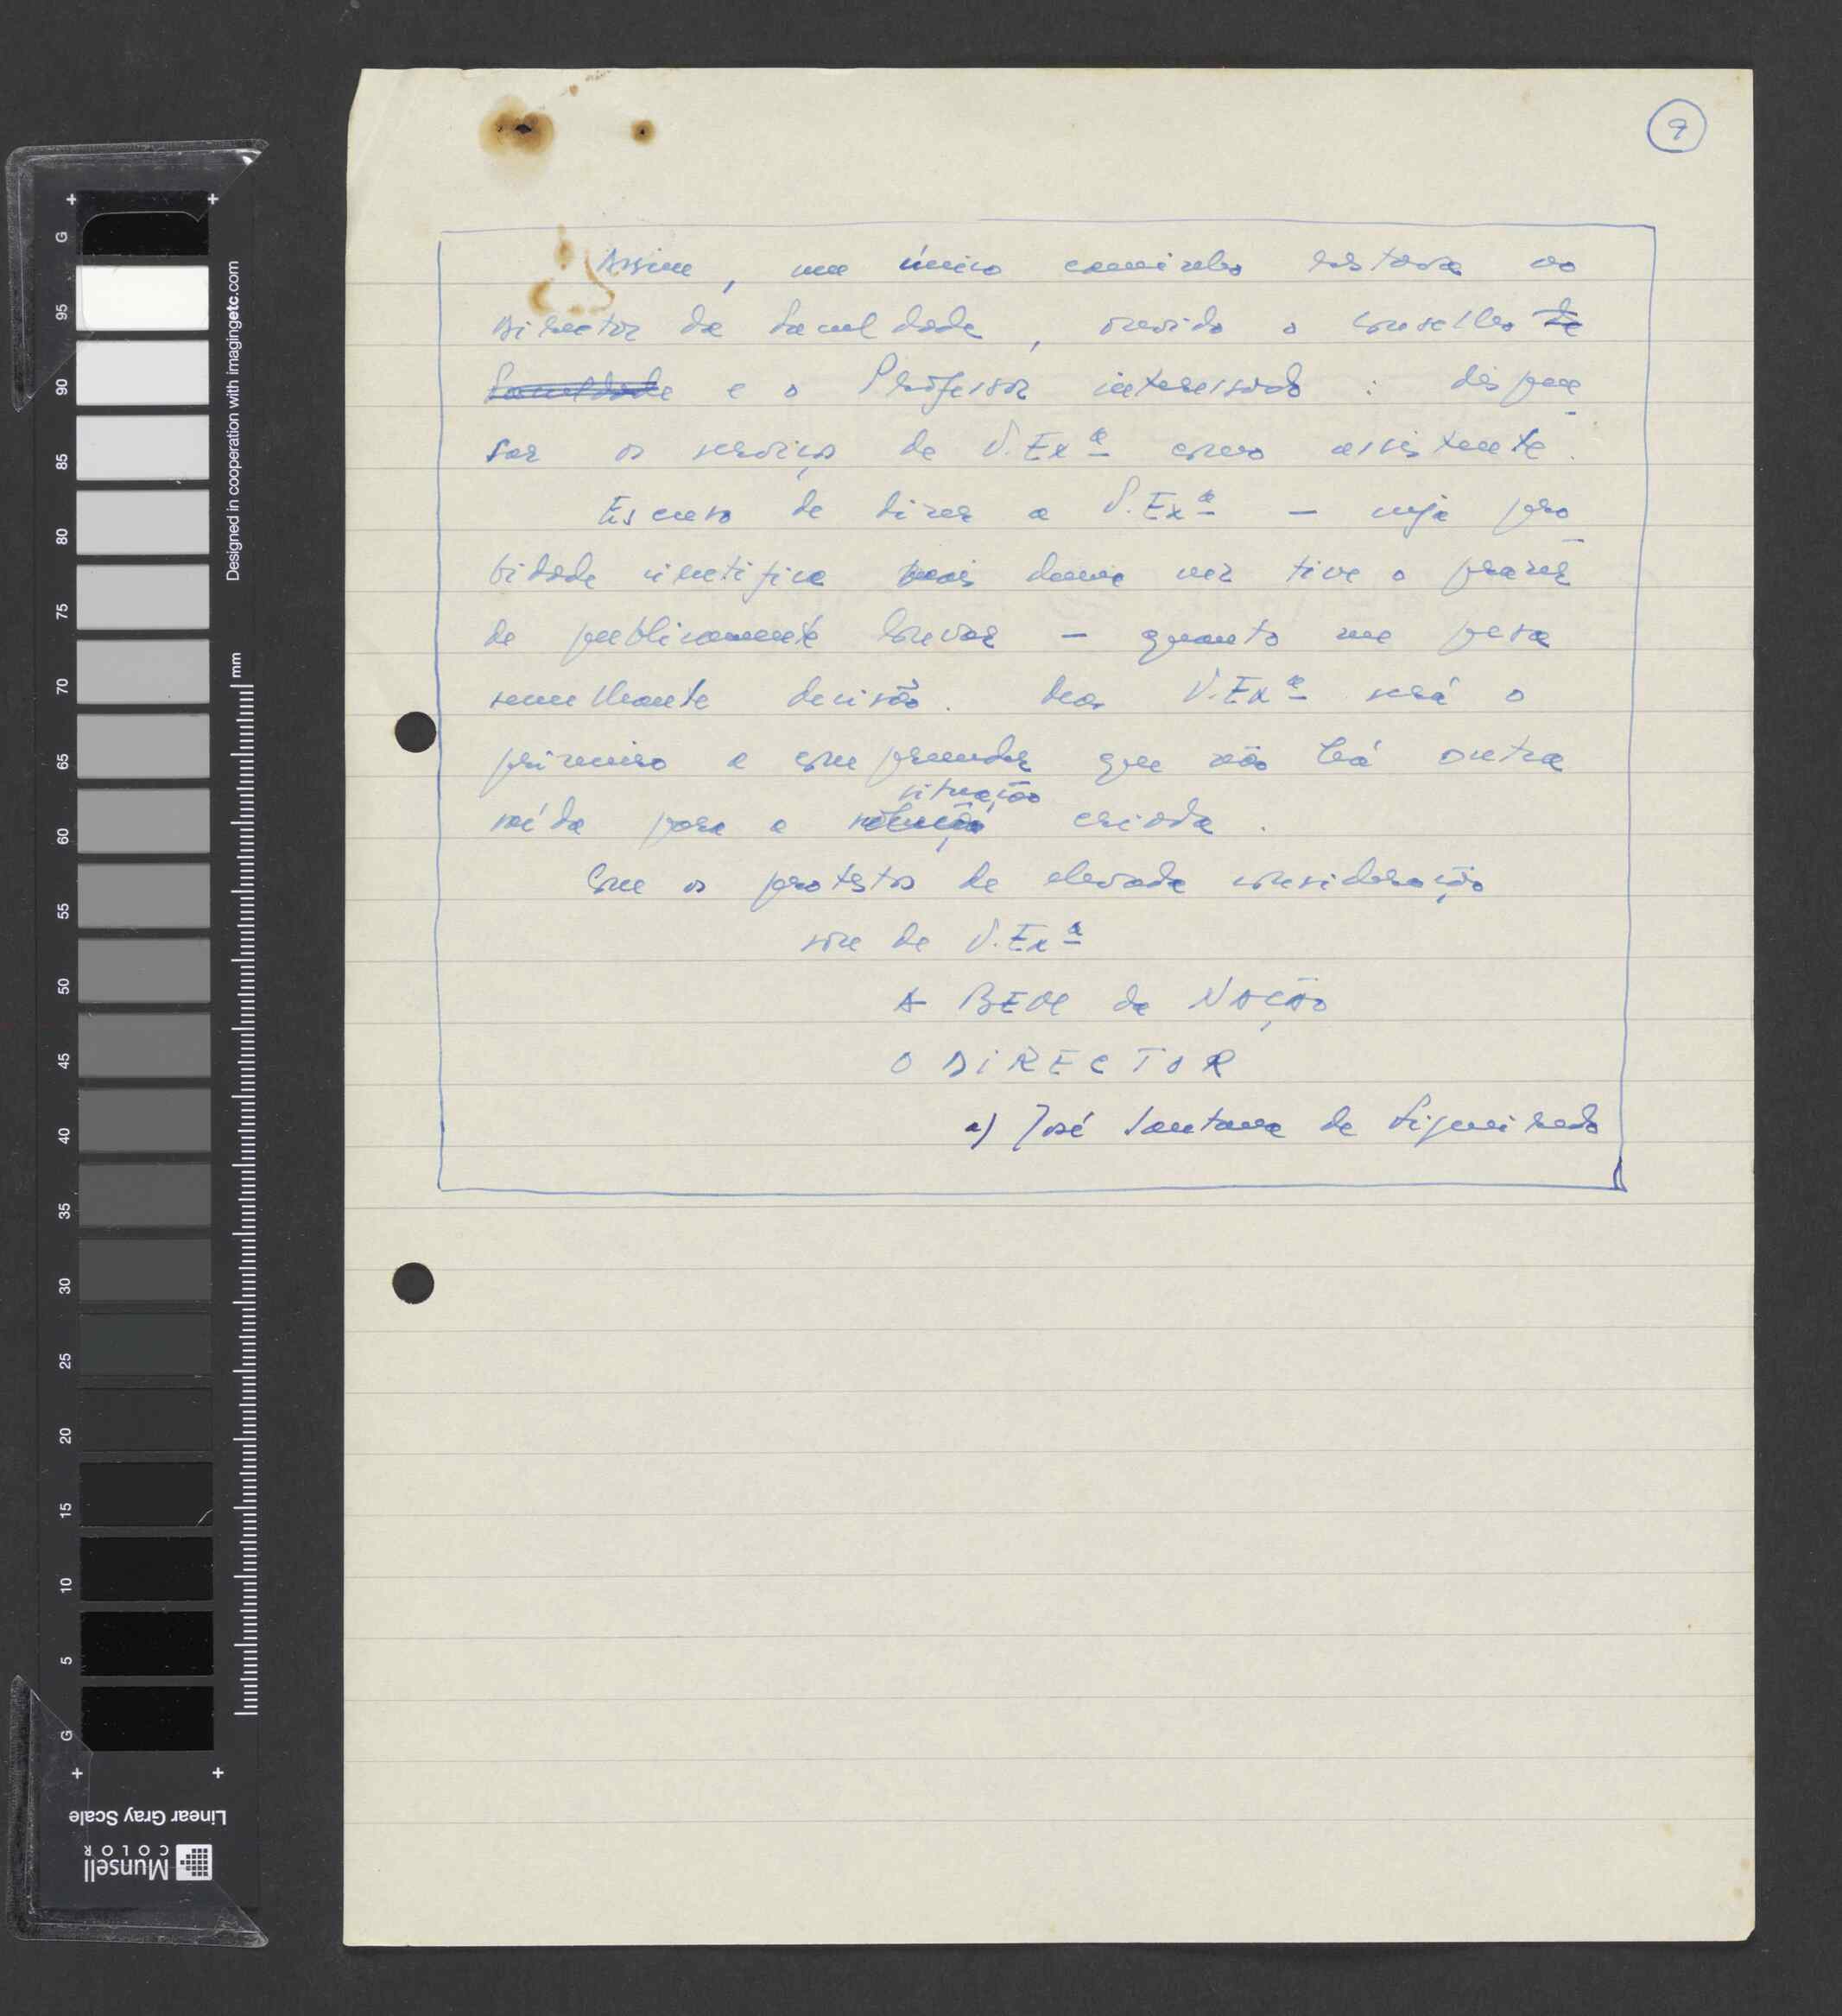 9
Assim, um único caminho restava ao
Director da Faculdade, ouvido o Conselho de
Faculdade e o Professor interessado: dispen
sar os serviços de V. Exª como assistente.
Escuso de dizer a V. Exª — cuja pro
bidade cientifica mais duma vez tive o prazer
de publicamente louvar — quanto me pesa
semelhante decisão. Mas V. Exª será o
primeiro a compreender que não há outra
situação
saída para a solução criada.
Com os protestos de elevada consideração
sou de V. Exª
A BEM da NAÇÃO
O DIRECTOR
a) José Santana de Figueiredo
Designed in cooperation with imagingetc.com
mm
+ +
G
95
90
85
80
75
70
65
60
55
50
45
40
35
30
25
20
15
10
5
G
+ +
Linear Gray Scale
Munsell
COLOR